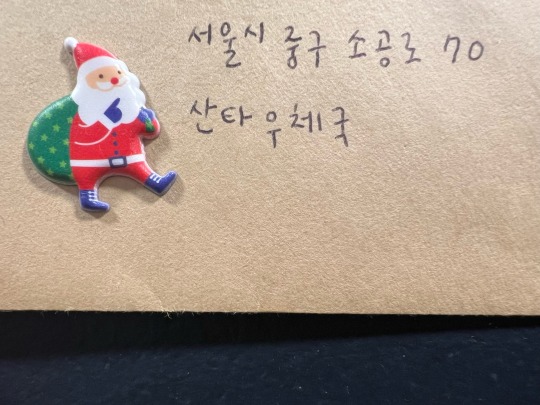 서울시 중구 소공로 70
산타우체국